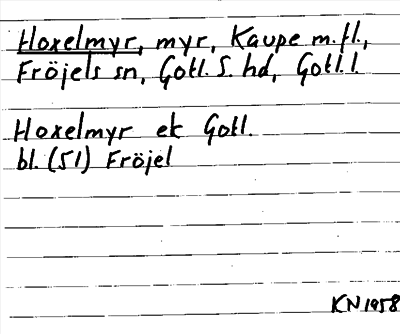 Hoxelmyr, myr, Kaupe m.fl.,
Fröjels sn, Gotl. S. hd, Gotl. l.
Hoxelmyr ek Gotl.
bl. (51) Fröjel
KN 1958